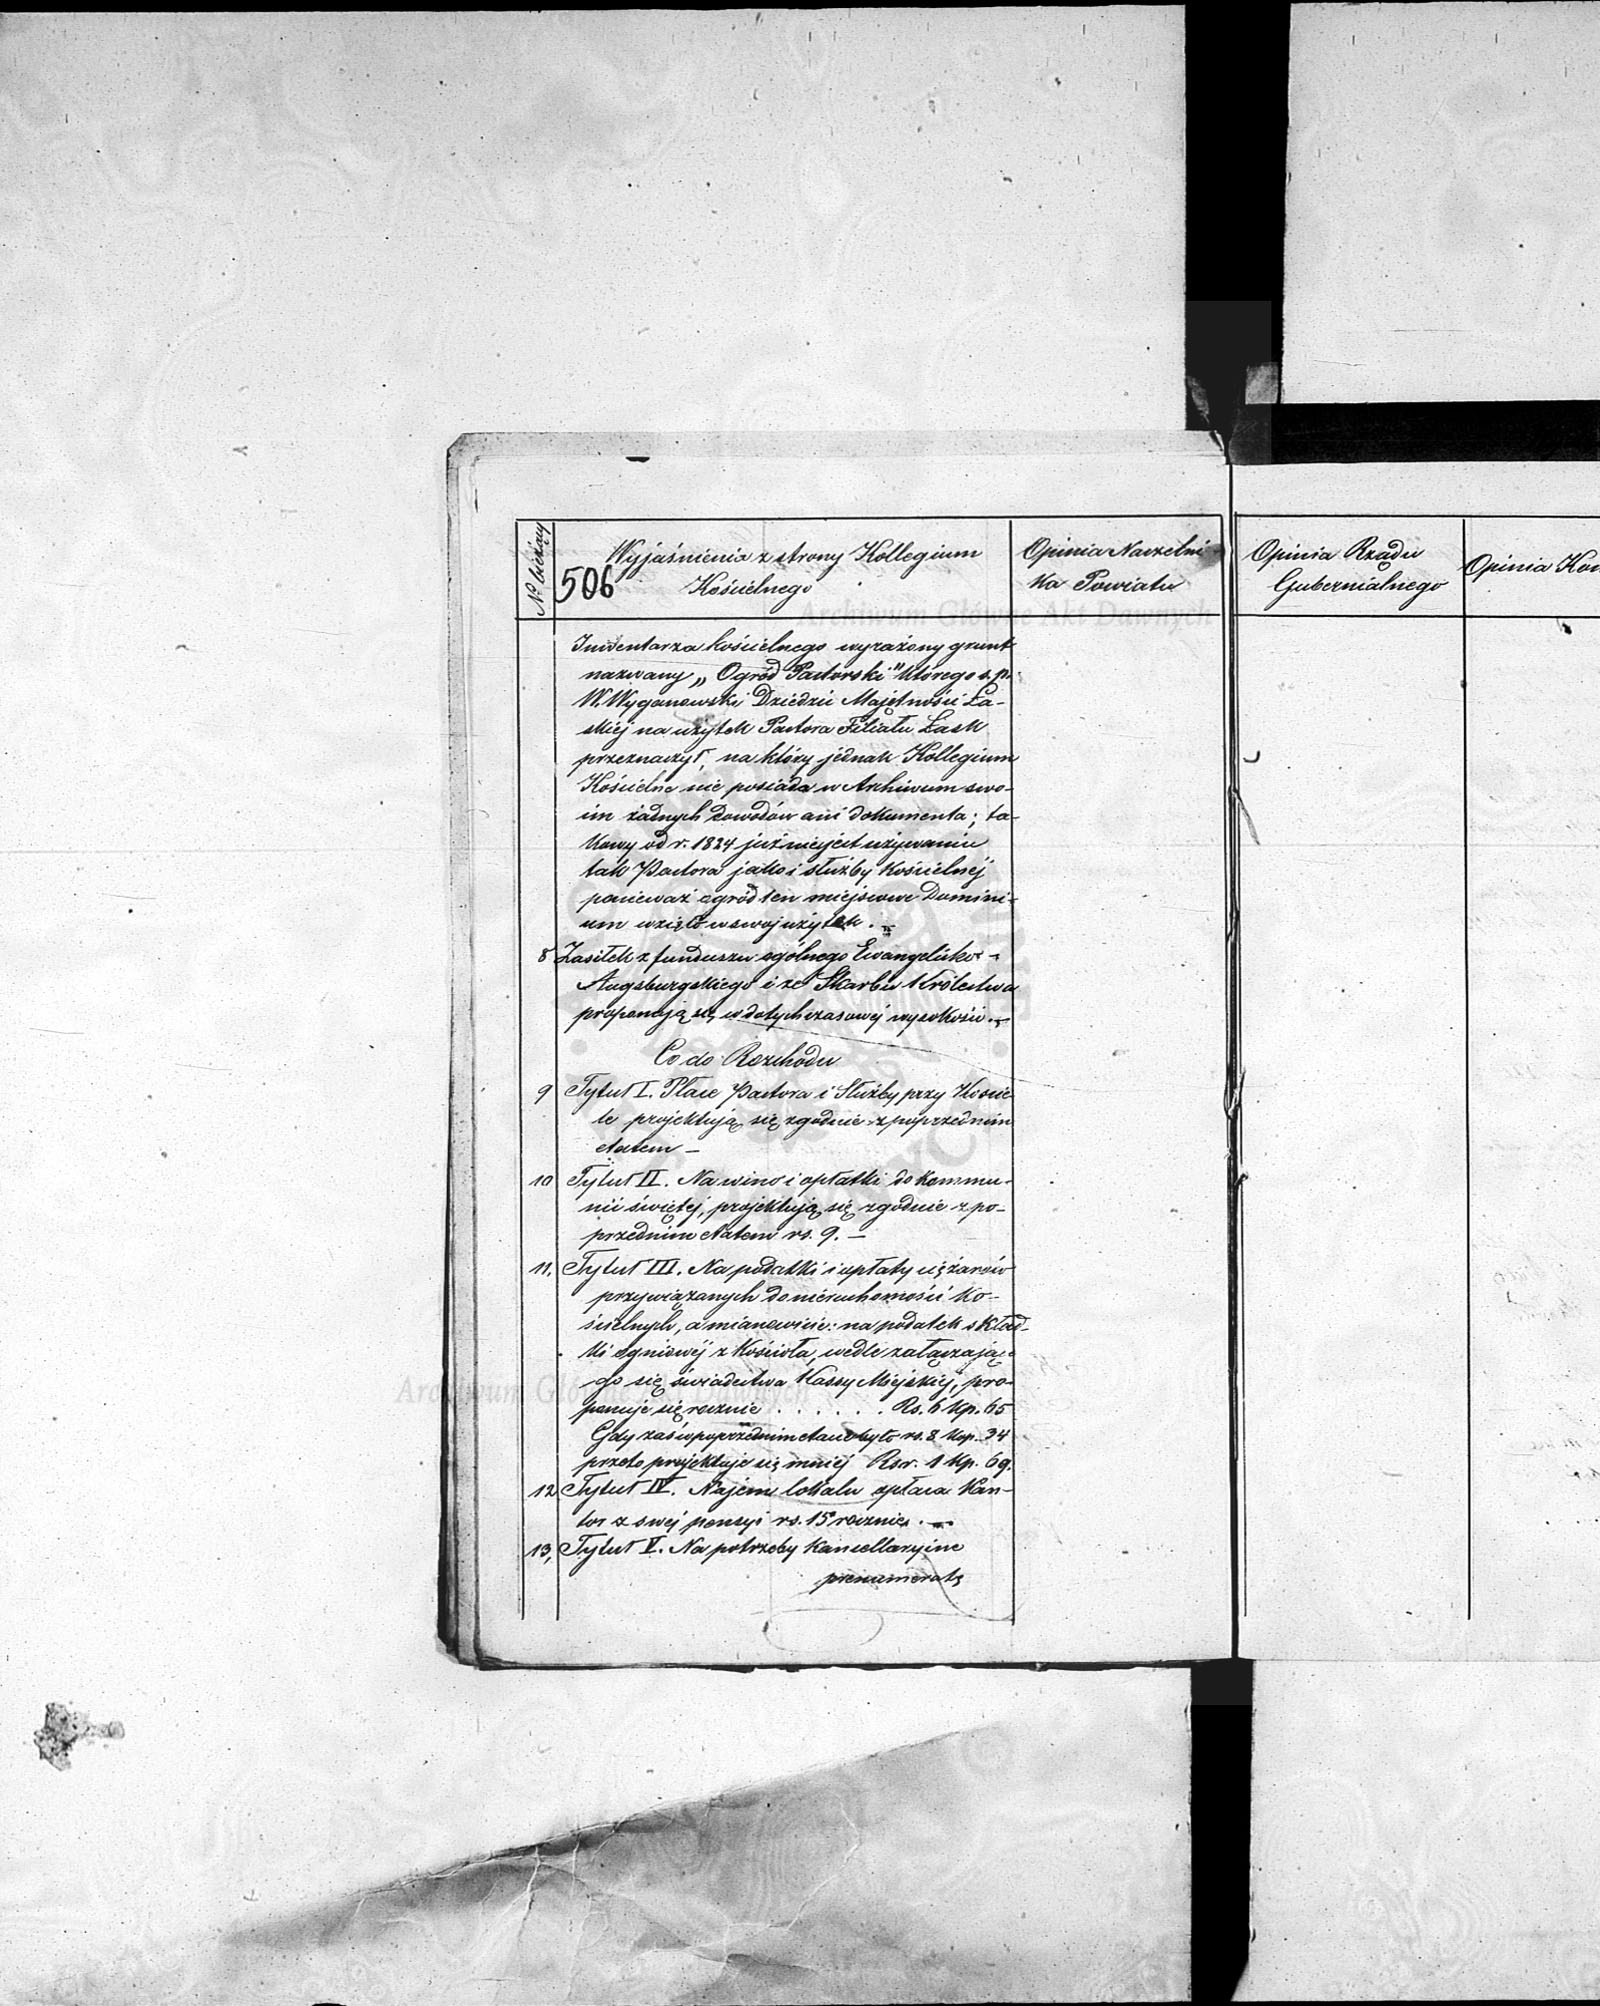 No bieżący
506
Wyjaśnienia z strony Kollegium
Kościelnego
Opinia Naczelni
ka Powiatu
Opinia Rządu
Gubernialnego
Opinia Kom
Archiwum Główne Akt Dawnych
Inwentarza kościelnego wyrażony grunt
nazwany „Ogród Pastorski" którego ś.p.
W. Wyganowski Dziedzic Majętności Ła-
skiej na użytek Pastora Filiału Łask
przeznaczył, na który jednak Kollegium
Kościelne nie posiada w Archiwum swo-
im żadnych dowodów ani dokumenta; ta-
kowy od r. 1824 już niejest używaniu
tak Pastora jako i służby Kościelnéj
ponieważ ogród ten miejscowe Domini-
um wzięło w swoj użytek. –
8 Zasiłek z funduszu ogólnego Ewangelicko-
Augsburgskiego i ze Skarbu Królestwa
proponują się w dotychczasowéj wysokości. –
Co do Rozchodu
9 Tytuł I. Płace Pastora i Służby przy Koście-
le projektują się zgodnie z poprzednim
etatem –
10 Tytuł II. Na wino i opłatki do Kommu-
nii świętéj, projektują się zgodnie z po-
przednim etatem rs. 9. –
11, Tytuł III. Na podatki i opłaty ciężarów
przywiązanych do nieruchomości Ko-
ścielnych, a mianowicie: na podatek składki
ki ogniowéj z Kościoła, wedle załączają-
go się świadectwa Kassy Miejskiéj, pro-
ponuje się rocznie . . . . . . Rs. 6 kp. 65
Gdy zaś w poprzednim etacie było rs. 8 kop. 34
przeto projektuje się mniéj Rsr. 1 kp. 69.
12 Tytuł IV. Najem lokalu opłaca Kan-
tor z swéj pensyi rs. 15 rocznie. –
13, Tytuł V. Na potrzeby Kancellaryjne
prenumeratę